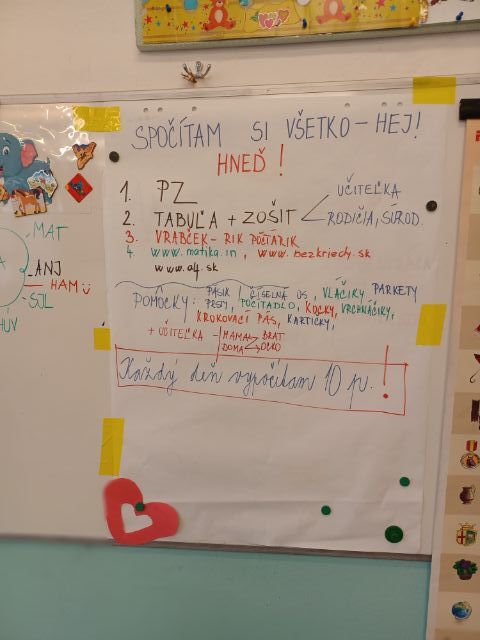 SPOČÍTAM SI VŠETKO - HEJ!
HNEĎ!
1. PZ
2. TABUĽA + ZOŠIT
UČITEĽKA
RODIČIA, SÚROD.
3. VRABČEK - RIK POČTÁRIK
4. www.matika.in, www.bezkriedy.sk
www.alf.sk
POMÔCKY: PÁSIK, ČÍSELNÁ OS, VLÁČIKY, PARKETY
PRSTY, POČÍTADLO, KOCKY, VRCHNÁČIKY,
KROKOVACÍ PÁS, KARTIČKY,
+ UČITEĽKA - MAMA BRAT
DOMA OCKO
Každý deň vypočítam 10 p. !
MAT
ANJ
HAM
SJL